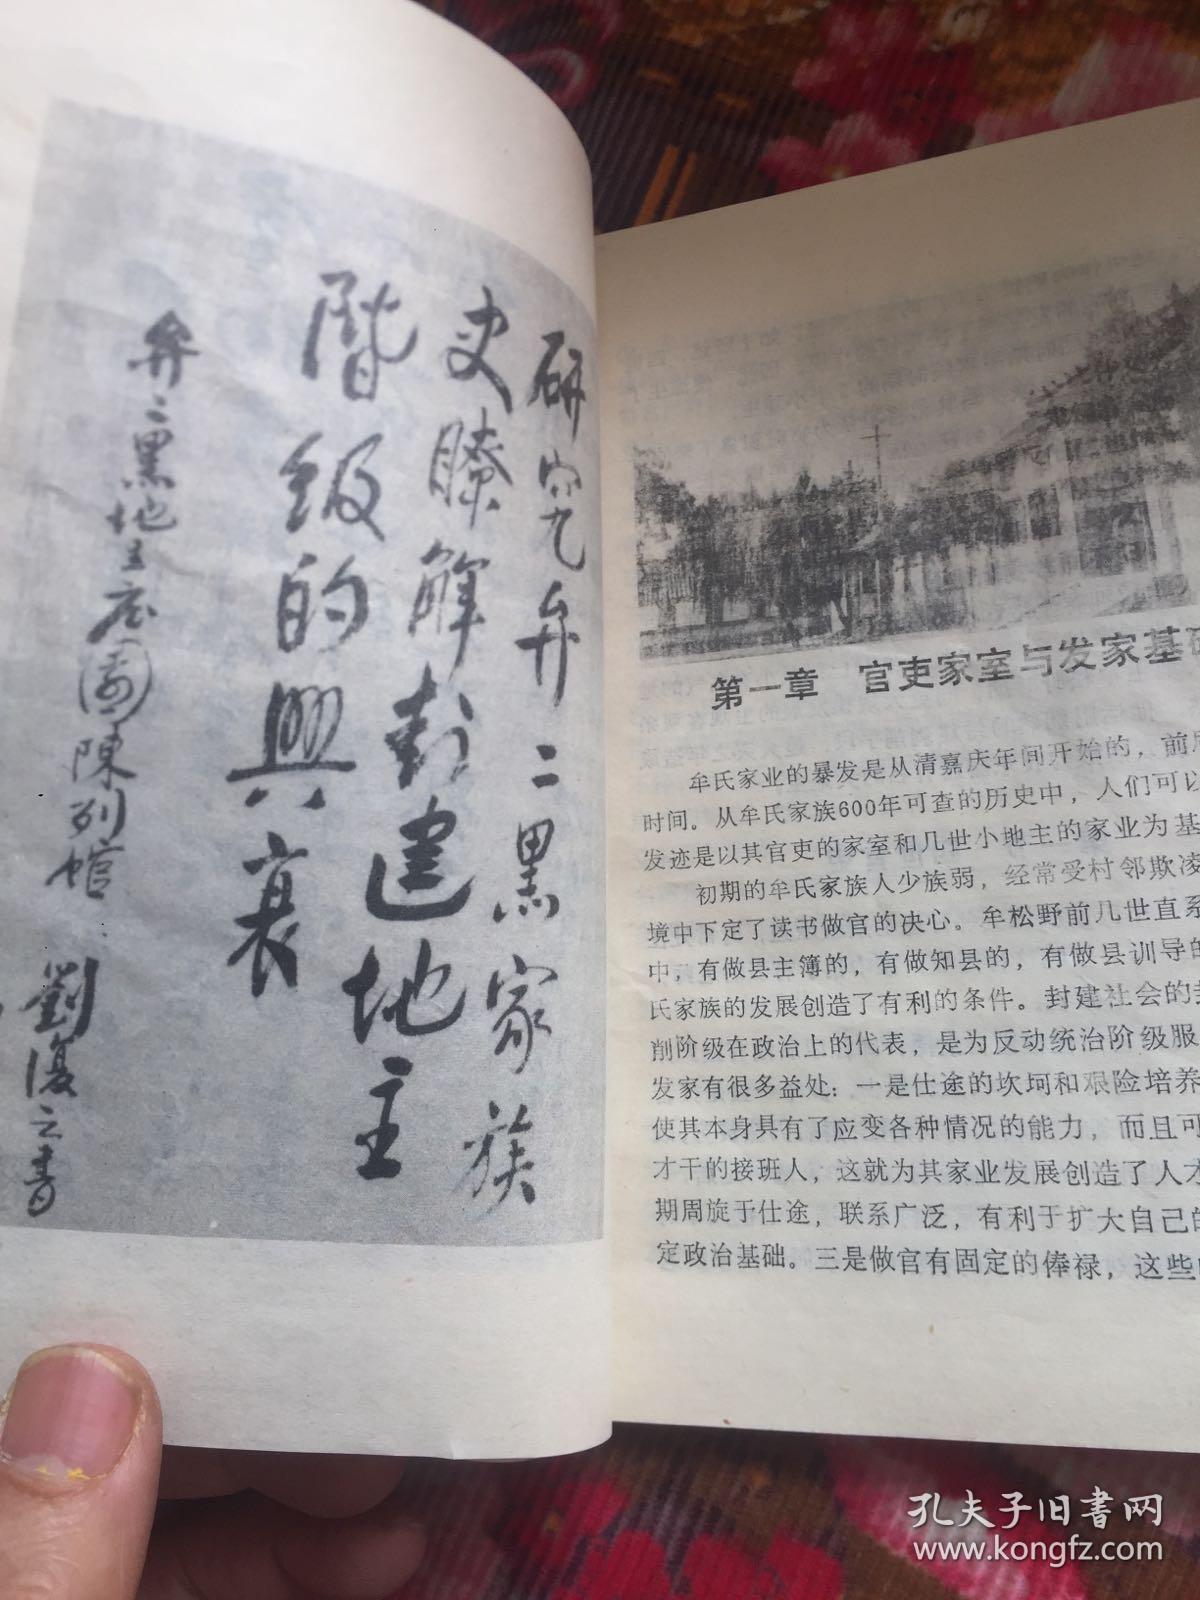 研究牟二黑家族
史瞭解封建地主
階级的興衰
牟二黑地主庄園陳列馆
劉復之書
第一章 官吏家室与发家基础
牟氏家业的暴发是从清嘉庆年间开始的，前后
时间。从牟氏家族600年可查的历史中，人们可以
发迹是以其官吏的家室和几世小地主的家业为基
初期的牟氏家族人少族弱，经常受村邻欺凌
境中下定了读书做官的决心。牟松野前几世直系
中，有做县主簿的，有做知县的，有做县训导的
氏家族的发展创造了有利的条件。封建社会的封
削阶级在政治上的代表，是为反动统治阶级服
发家有很多益处：一是仕途的坎坷和艰险培养
使其本身具有了应变各种情况的能力，而且可
才干的接班人，这就为其家业发展创造了人才
期周旋于仕途，联系广泛，有利于扩大自己的
定政治基础。三是做官有固定的俸禄，这些
孔夫子旧书网
www.kongfz.com